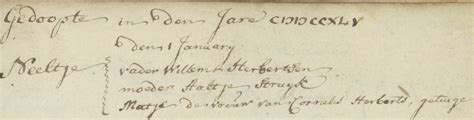 Gedoopte in den Jare CIↃIↃCCXLV
den 1 January
Neeltje vader Willem Herbertsen
moeder Haltje Struyk
Matje de vrouw van Cornelis Herberts, getuige